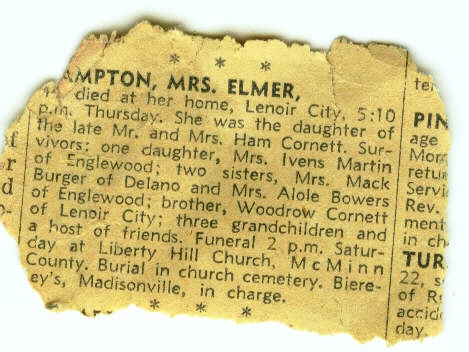 * * *
AMPTON, MRS. ELMER,
died at her home, Lenoir City, 5:10
p.m. Thursday. She was the daughter of
the late Mr. and Mrs. Ham Cornett. Sur-
vivors: one daughter, Mrs. Ivens Martin
of Englewood; two sisters, Mrs. Mack
Burger of Delano and Mrs. Alole Bowers
of Englewood; brother, Woodrow Cornett
of Lenoir City; three grandchildren and
a host of friends. Funeral 2 p.m. Satur-
day at Liberty Hill Church, McMinn
County. Burial in church cemetery. Biere-
ley's, Madisonville, in charge.
* * *
f
r
d
s
ter
PIN
age
Mor
retu
Servi
Rev.
ment
in ch
TUR
22, s
of R
accid
day.